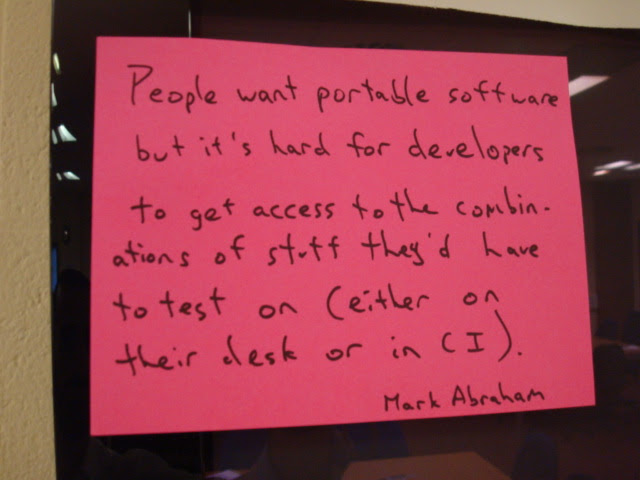 People want portable software
but it's hard for developers
to get access to the combin-
ations of stuff they'd have
to test on (either on
their desk or in CI).
Mark Abraham